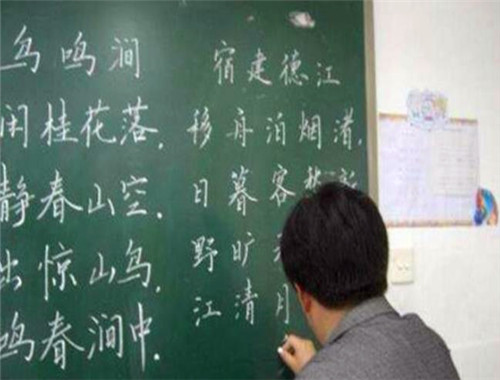 鸟鸣涧
闲桂花落,
静春山空.
出惊山鸟,
鸣春涧中.
宿建德江
移舟泊烟渚,
日暮客愁新
野旷
江清月